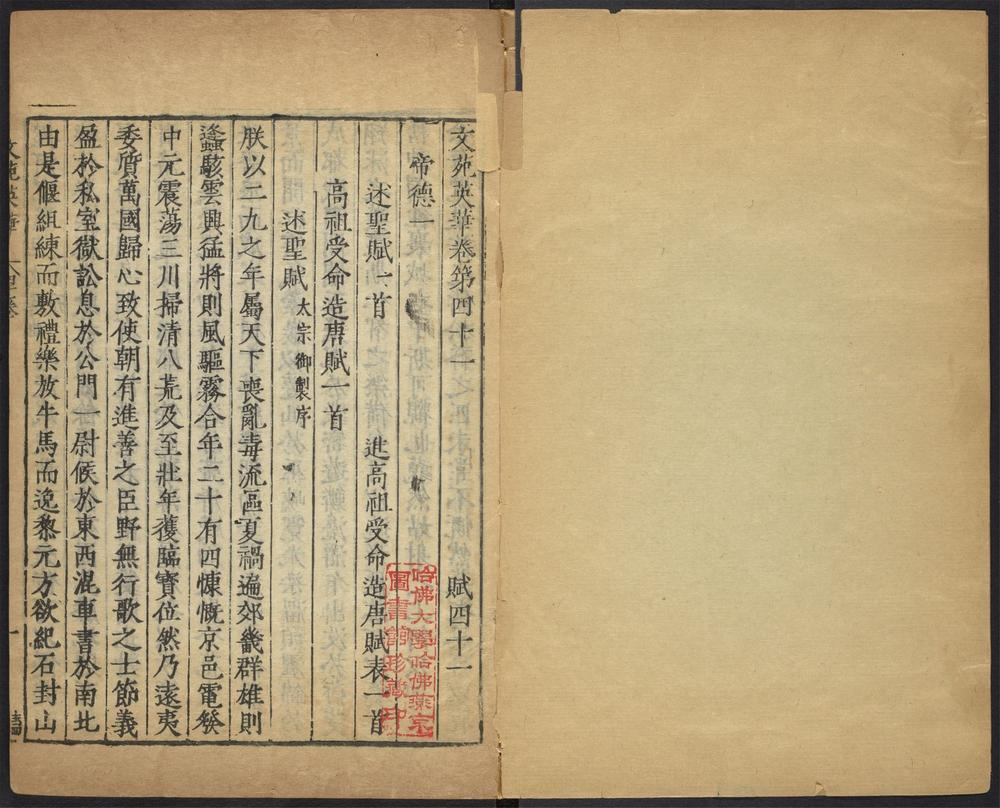 文苑英華卷第四十一　賦四十一
帝德一
述聖賦一首　進高祖受命造唐賦表一首
高祖受命造唐賦一首
述聖賦 太宗御製序
朕以二九之年屬天下喪亂毒流區夏禍遍郊畿群雄則
蠭駭雲興猛將則風驅霧合年二十有四慷慨京邑電發
中元震荡三川掃清八荒及至壯年獲臨寳位然乃遠夷
委質萬國歸心致使朝有進善之臣野無行歌之士節義
盈於私室獄訟息於公門一尉候於東西混車書於南北
由是偃組練而敷禮樂放牛馬而逸黎元方欲紀石封山
文苑英華
一
哈佛大學哈佛燕京
圖書館珍藏印